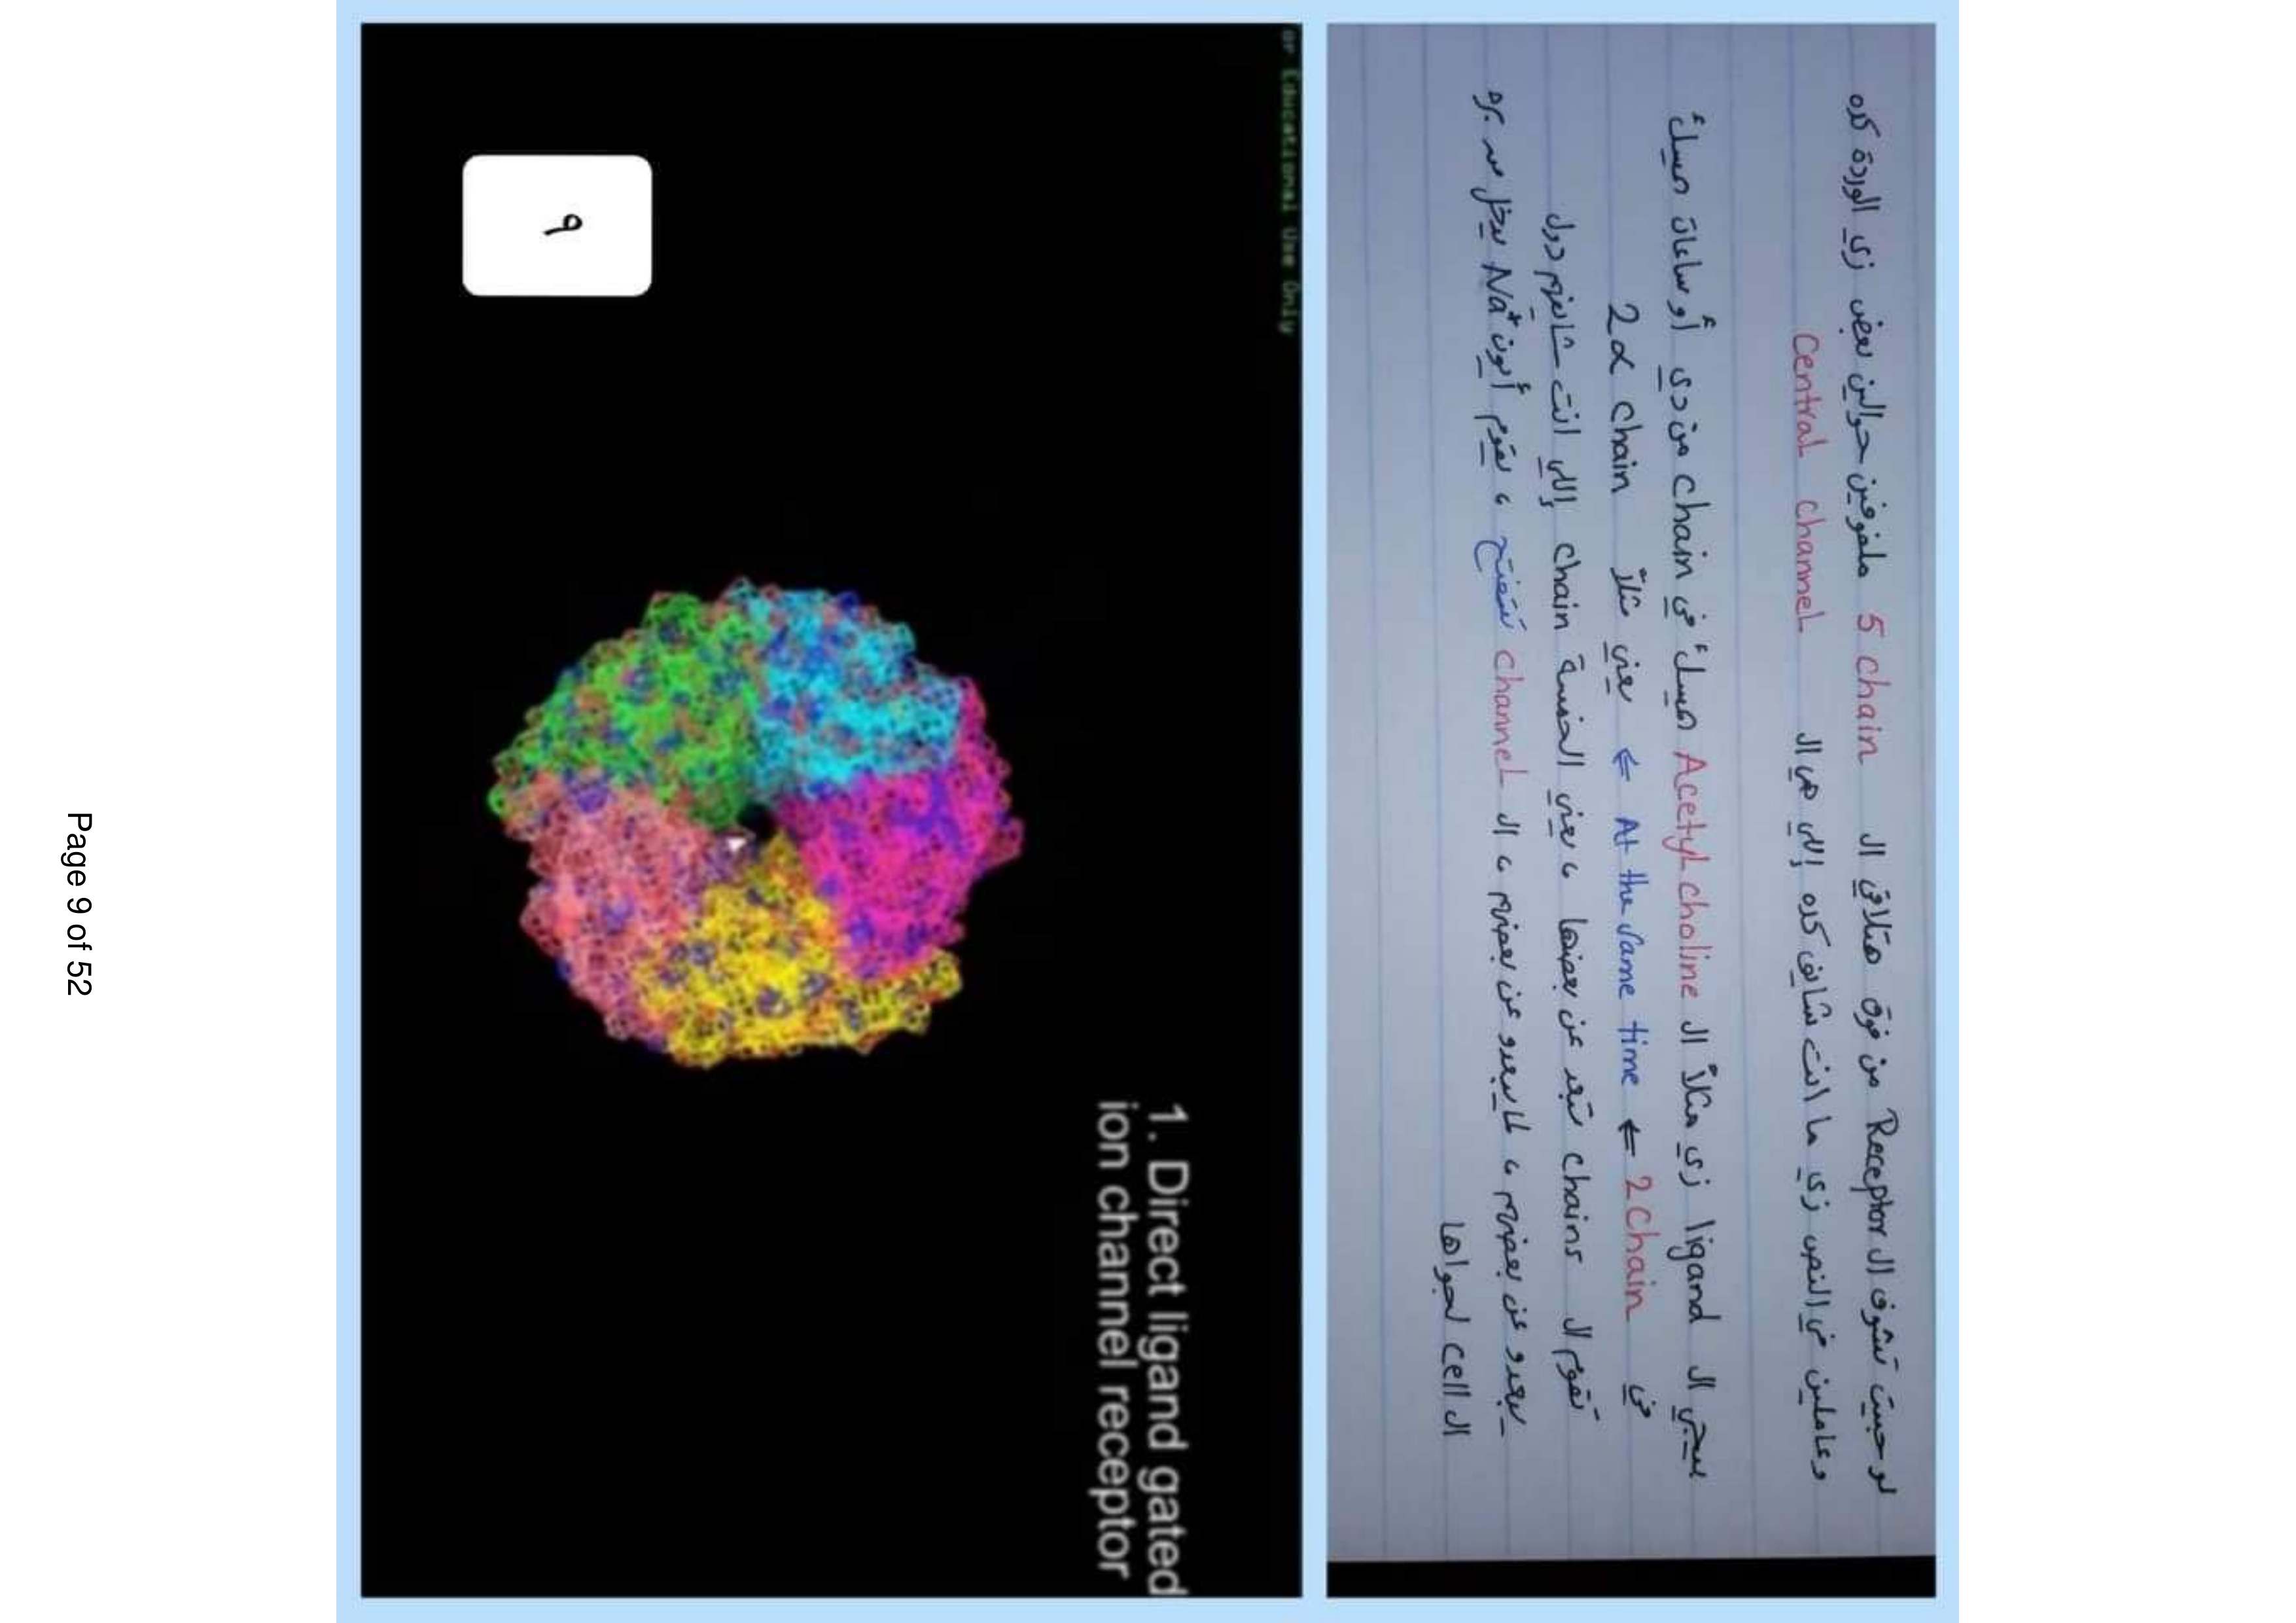 لو حبيت تشوف الـ Receptor من فوق هتلاقي الـ 5 chain ملفوفين حوالين بعض زي الوردة كده
وعاملين في النص زي ما انت شايف كده إللي هي الـ Central channel
بييجي الـ ligand زي مثلاً الـ Acetyl choline هيمسك في chain من دي أو ساعات هيمسك
في 2 chain ⇐ At the same time ⇐ يعني مثلاً 2α chain
تقوم الـ chains تبعد عن بعضها ، يعني الخمسة chain إللي انت شايفهم دول
يبعدو عن بعضهم ، لما يبعدو عن بعضهم ، الـ channel تتفتح ، يقوم أيون Na+ يدخل من بره
الـ cell لجواها
or Educational Use Only
1. Direct ligand gated
ion channel receptor
٩
Page 9 of 52